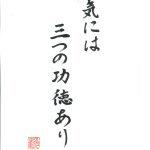 気には
三つの功徳あり